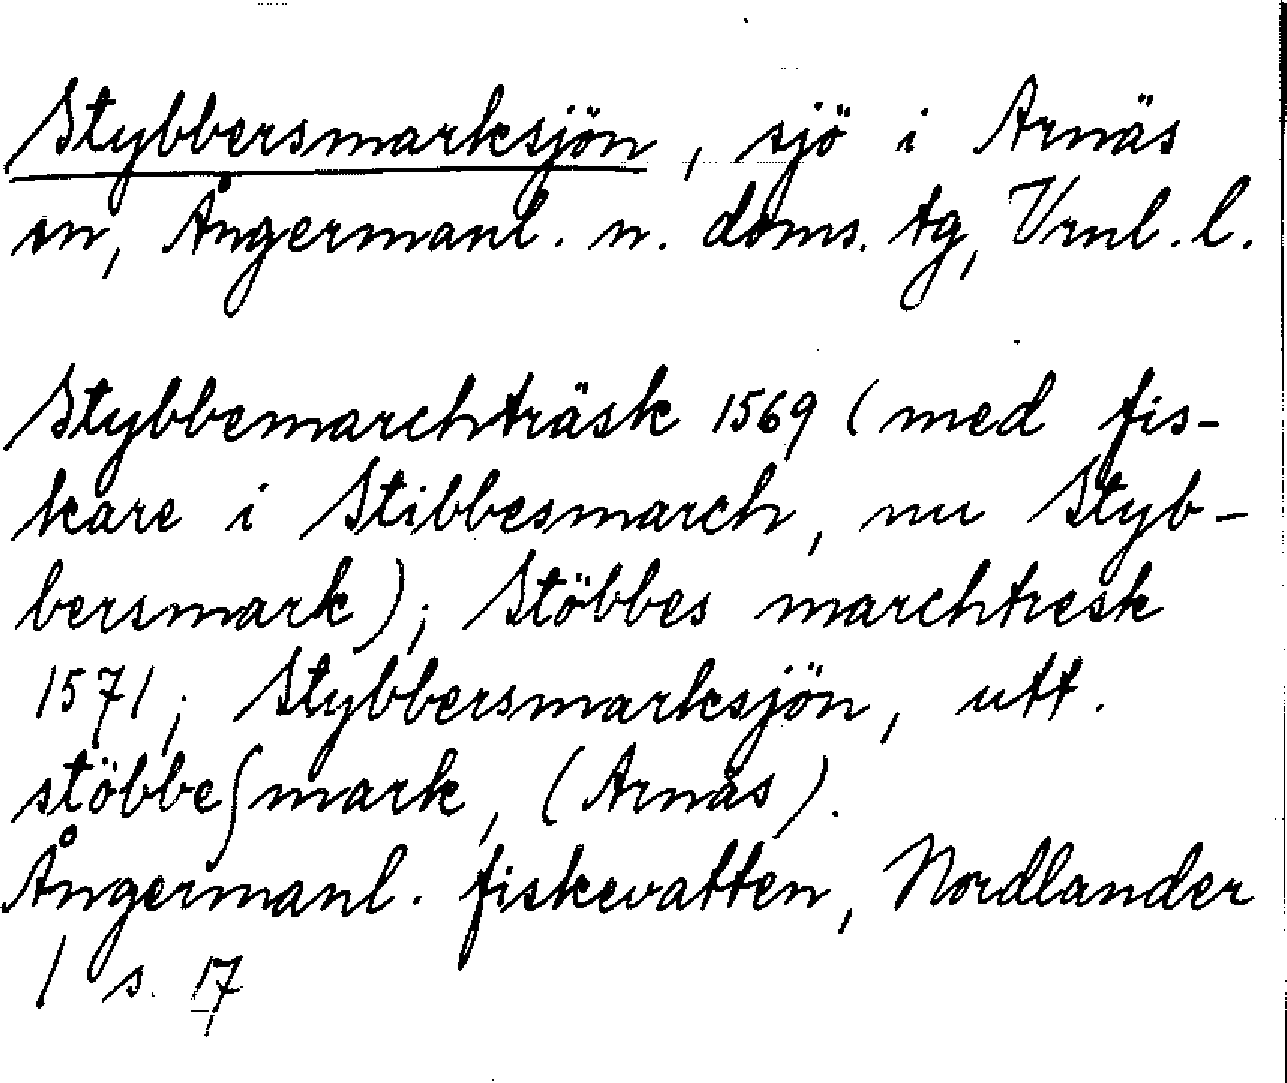 Stybbersmarksjön, sjö i Arnäs
sn, Ångermanl. n. doms. tg, Vrnl. l.
Stybbemarchträsk 1569 (med fis-
kare i Stibbesmarch, nu Styb-
bersmark); Stöbbes marchtresk
1571; Stybbersmarksjön, utt.
stöbbeʃmark, (Arnäs).
Ångermanl. fiskevatten, Nordlander
1 s. 17